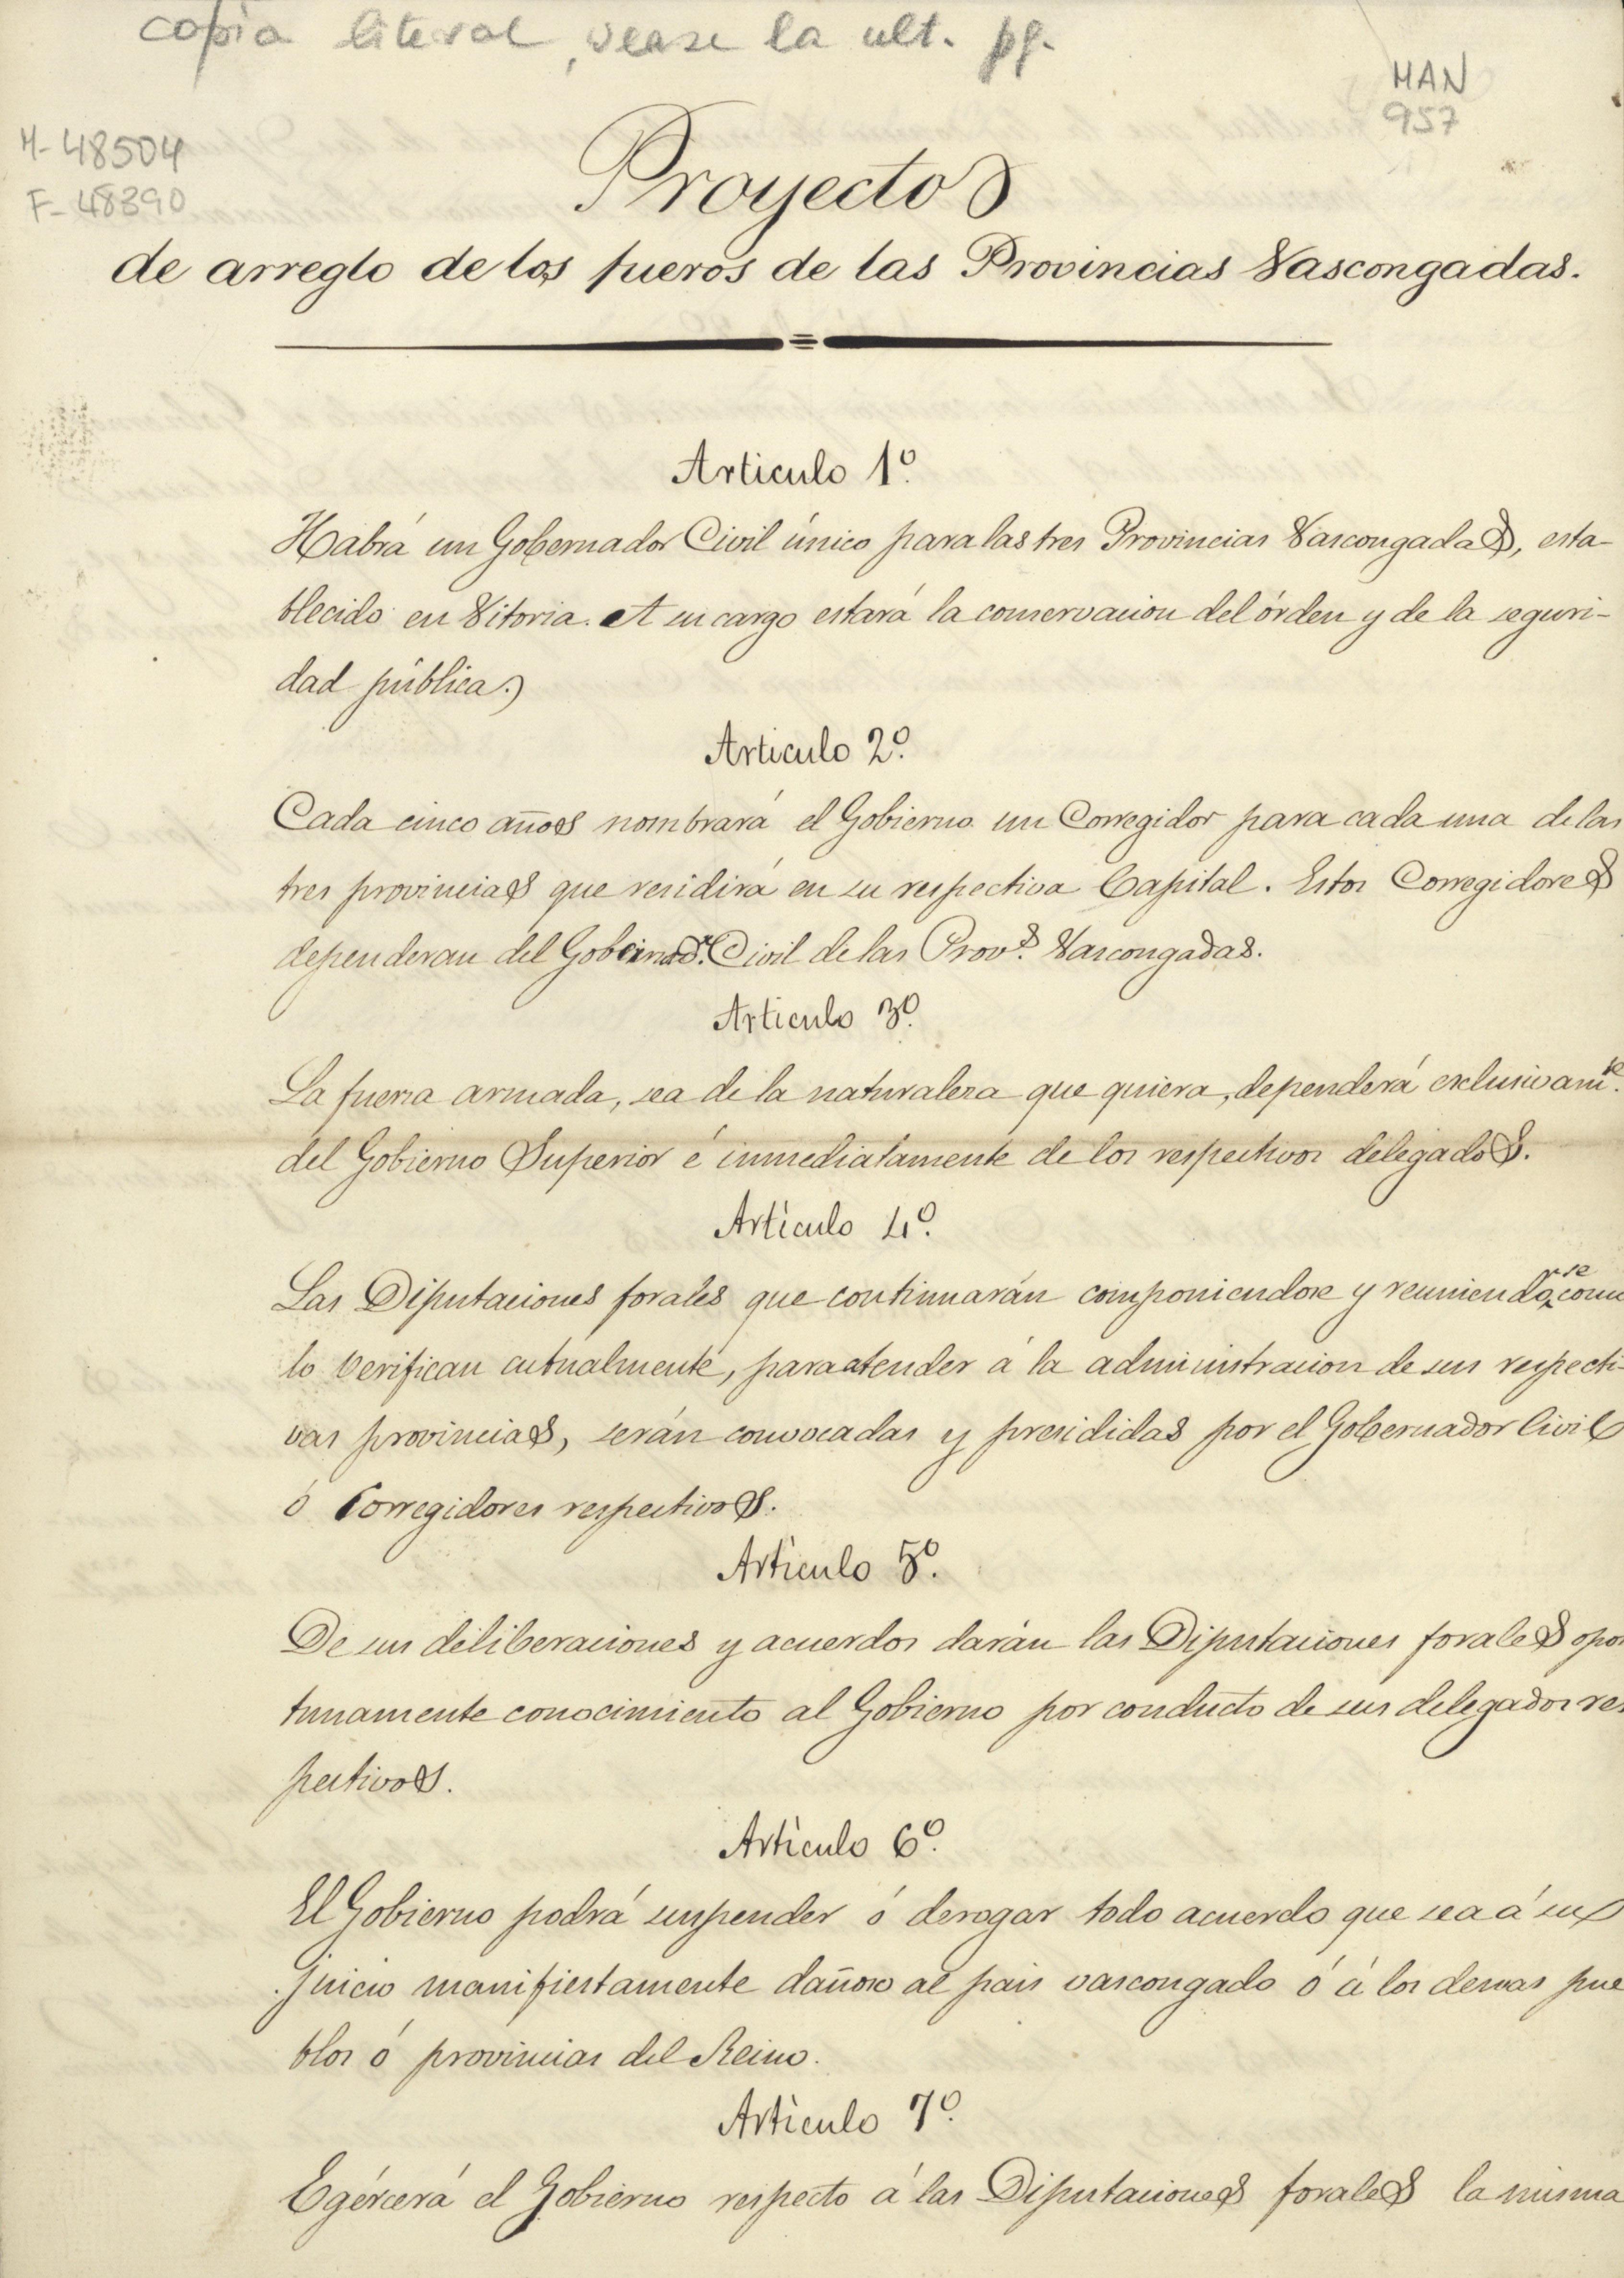 copia literal, vease la ult. pg.
MAN
957
M-48504
F-48390
Proyecto
de arreglo de los fueros de las Provincias Vascongadas.
Articulo 1º.
Habrá un Gobernador Civil único para las tres Provincias Vascongadas, esta-
blecido en Vitoria. A su cargo estará la conservacion del órden y de la seguri-
dad pública.
Articulo 2º.
Cada cinco años nombrará el Gobierno un Corregidor para cada una de las
tres provincias que residirá en su respectiva Capital. Estos Corregidores
dependeran del Gobernadr. Civil de las Provs. Vascongadas.
Articulo 3º.
La fuerza armada, sea de la naturaleza que quiera, dependerá exclusivamte.
del Gobierno Superior é inmediatamente de los respectivos delegados.
Artículo 4º.
Las Diputaciones forales que continuarán componiendose y reuniendose como
lo verifican actualmente, para atender á la administracion de sus respecti-
vas provincias, serán convocadas y presididas por el Gobernador Civil
ó Corregidores respectivos.
Artículo 5º.
De sus deliberaciones y acuerdos darán las Diputaciones forales opor
tunamente conocimiento al Gobierno por conducto de sus delegados res
pectivos.
Artículo 6º.
El Gobierno podrá suspender ó derogar todo acuerdo que sea á su
juicio manifiestamente dañoso al pais vascongado ó á los demas pue
blos ó provincias del Reino.
Artículo 7º.
Egércerá el Gobierno respecto á las Diputaciones forales la misma